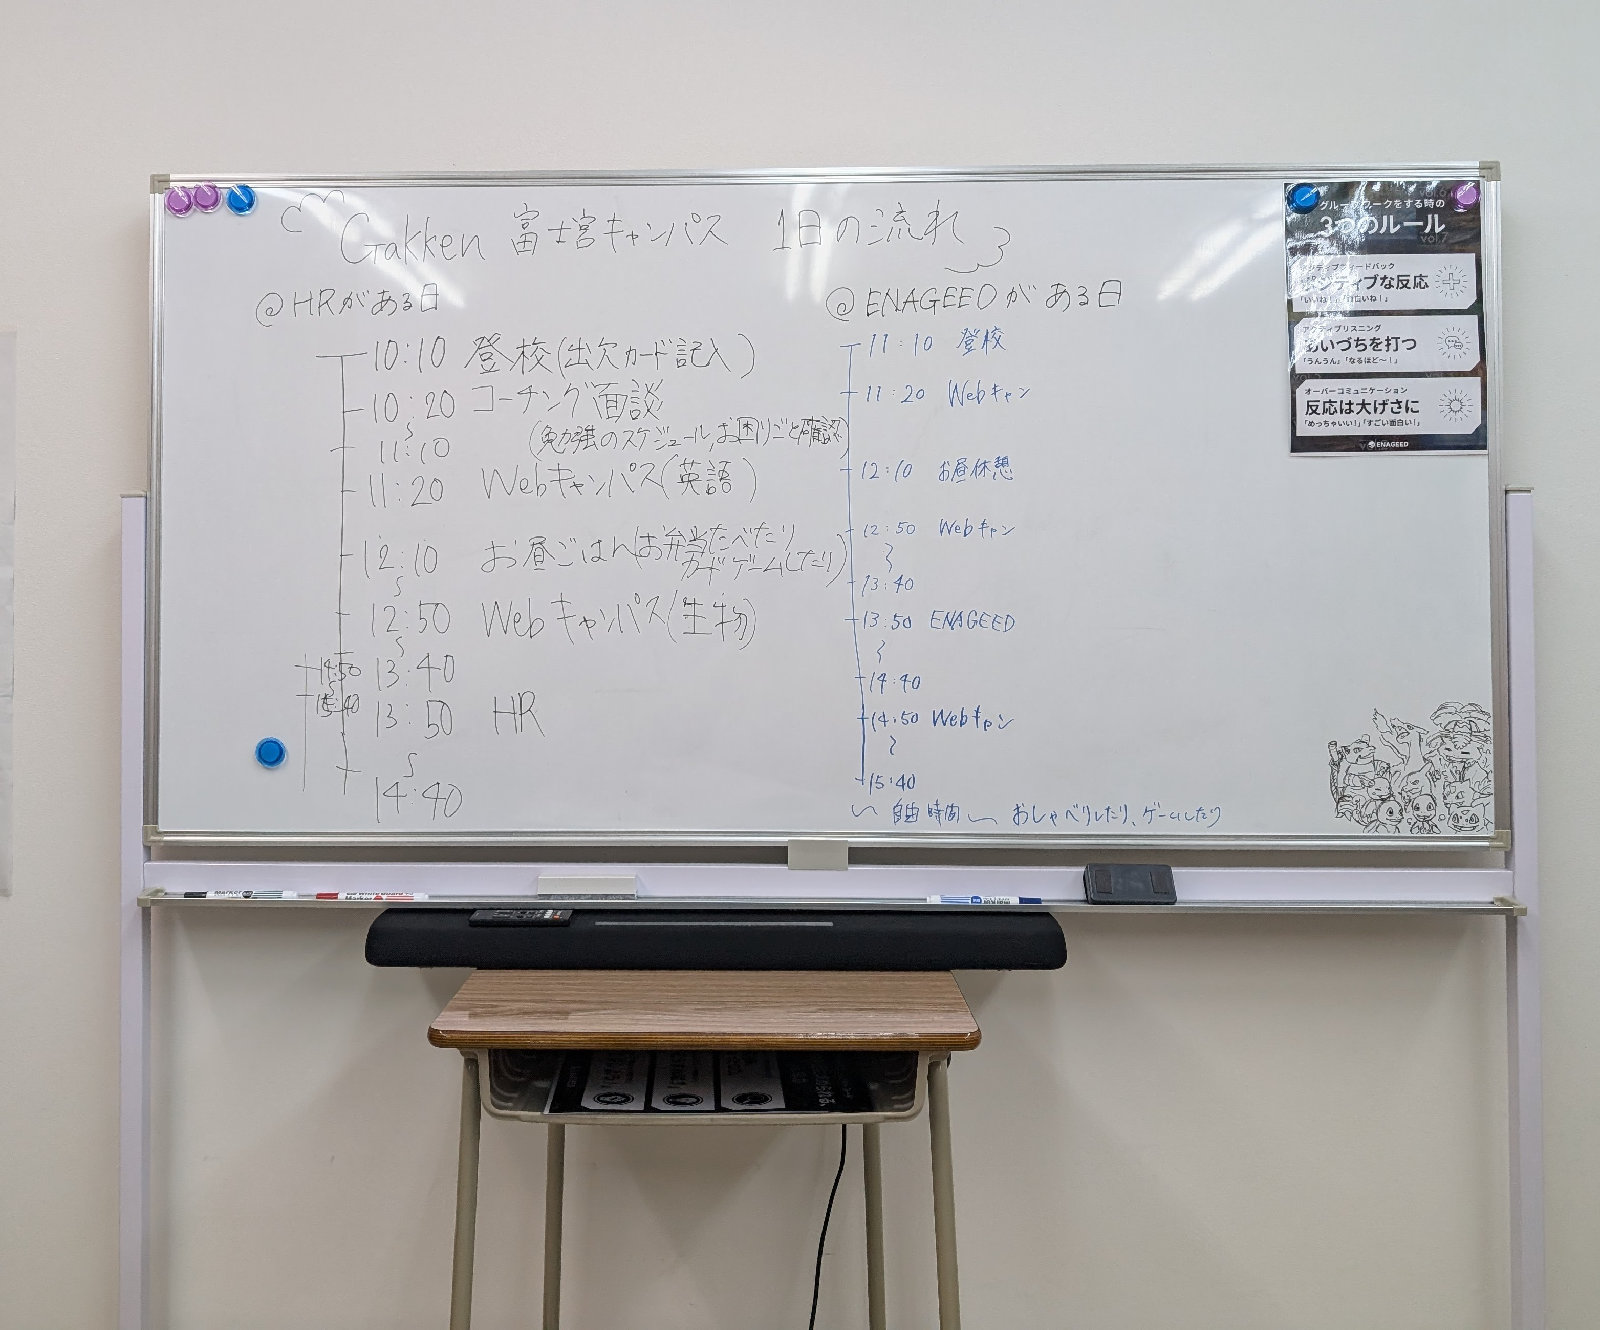 Gakken 富士宮キャンパス 1日の流れ
@HRがある日
10:10 登校(出欠カード記入)
10:20 コーチング面談
(勉強のスケジュール,お困りごと確認)
11:10
11:20 Webキャンパス(英語)
12:10 お昼ごはん(お弁当たべたり
カードゲームしたり)
12:50 Webキャンパス(生物)
13:40
13:50 HR
14:40
14:50
15:40
@ENAGEEDがある日
11:10 登校
11:20 Webキャン
12:10 お昼休憩
12:50 Webキャン
13:40
13:50 ENAGEED
14:40
14:50 Webキャン
15:40
〜 自由時間 〜 おしゃべりしたり、ゲームしたり
グループワークをする時の
3つのルール
vol.7
ポジティブな反応
「いいね!」
アクティブリスニング
あいづちを打つ
「うんうん」「なるほど〜!」
オーバーコミュニケーション
反応は大げさに
「めっちゃいい!」「すごい面白い!」
ENAGEED